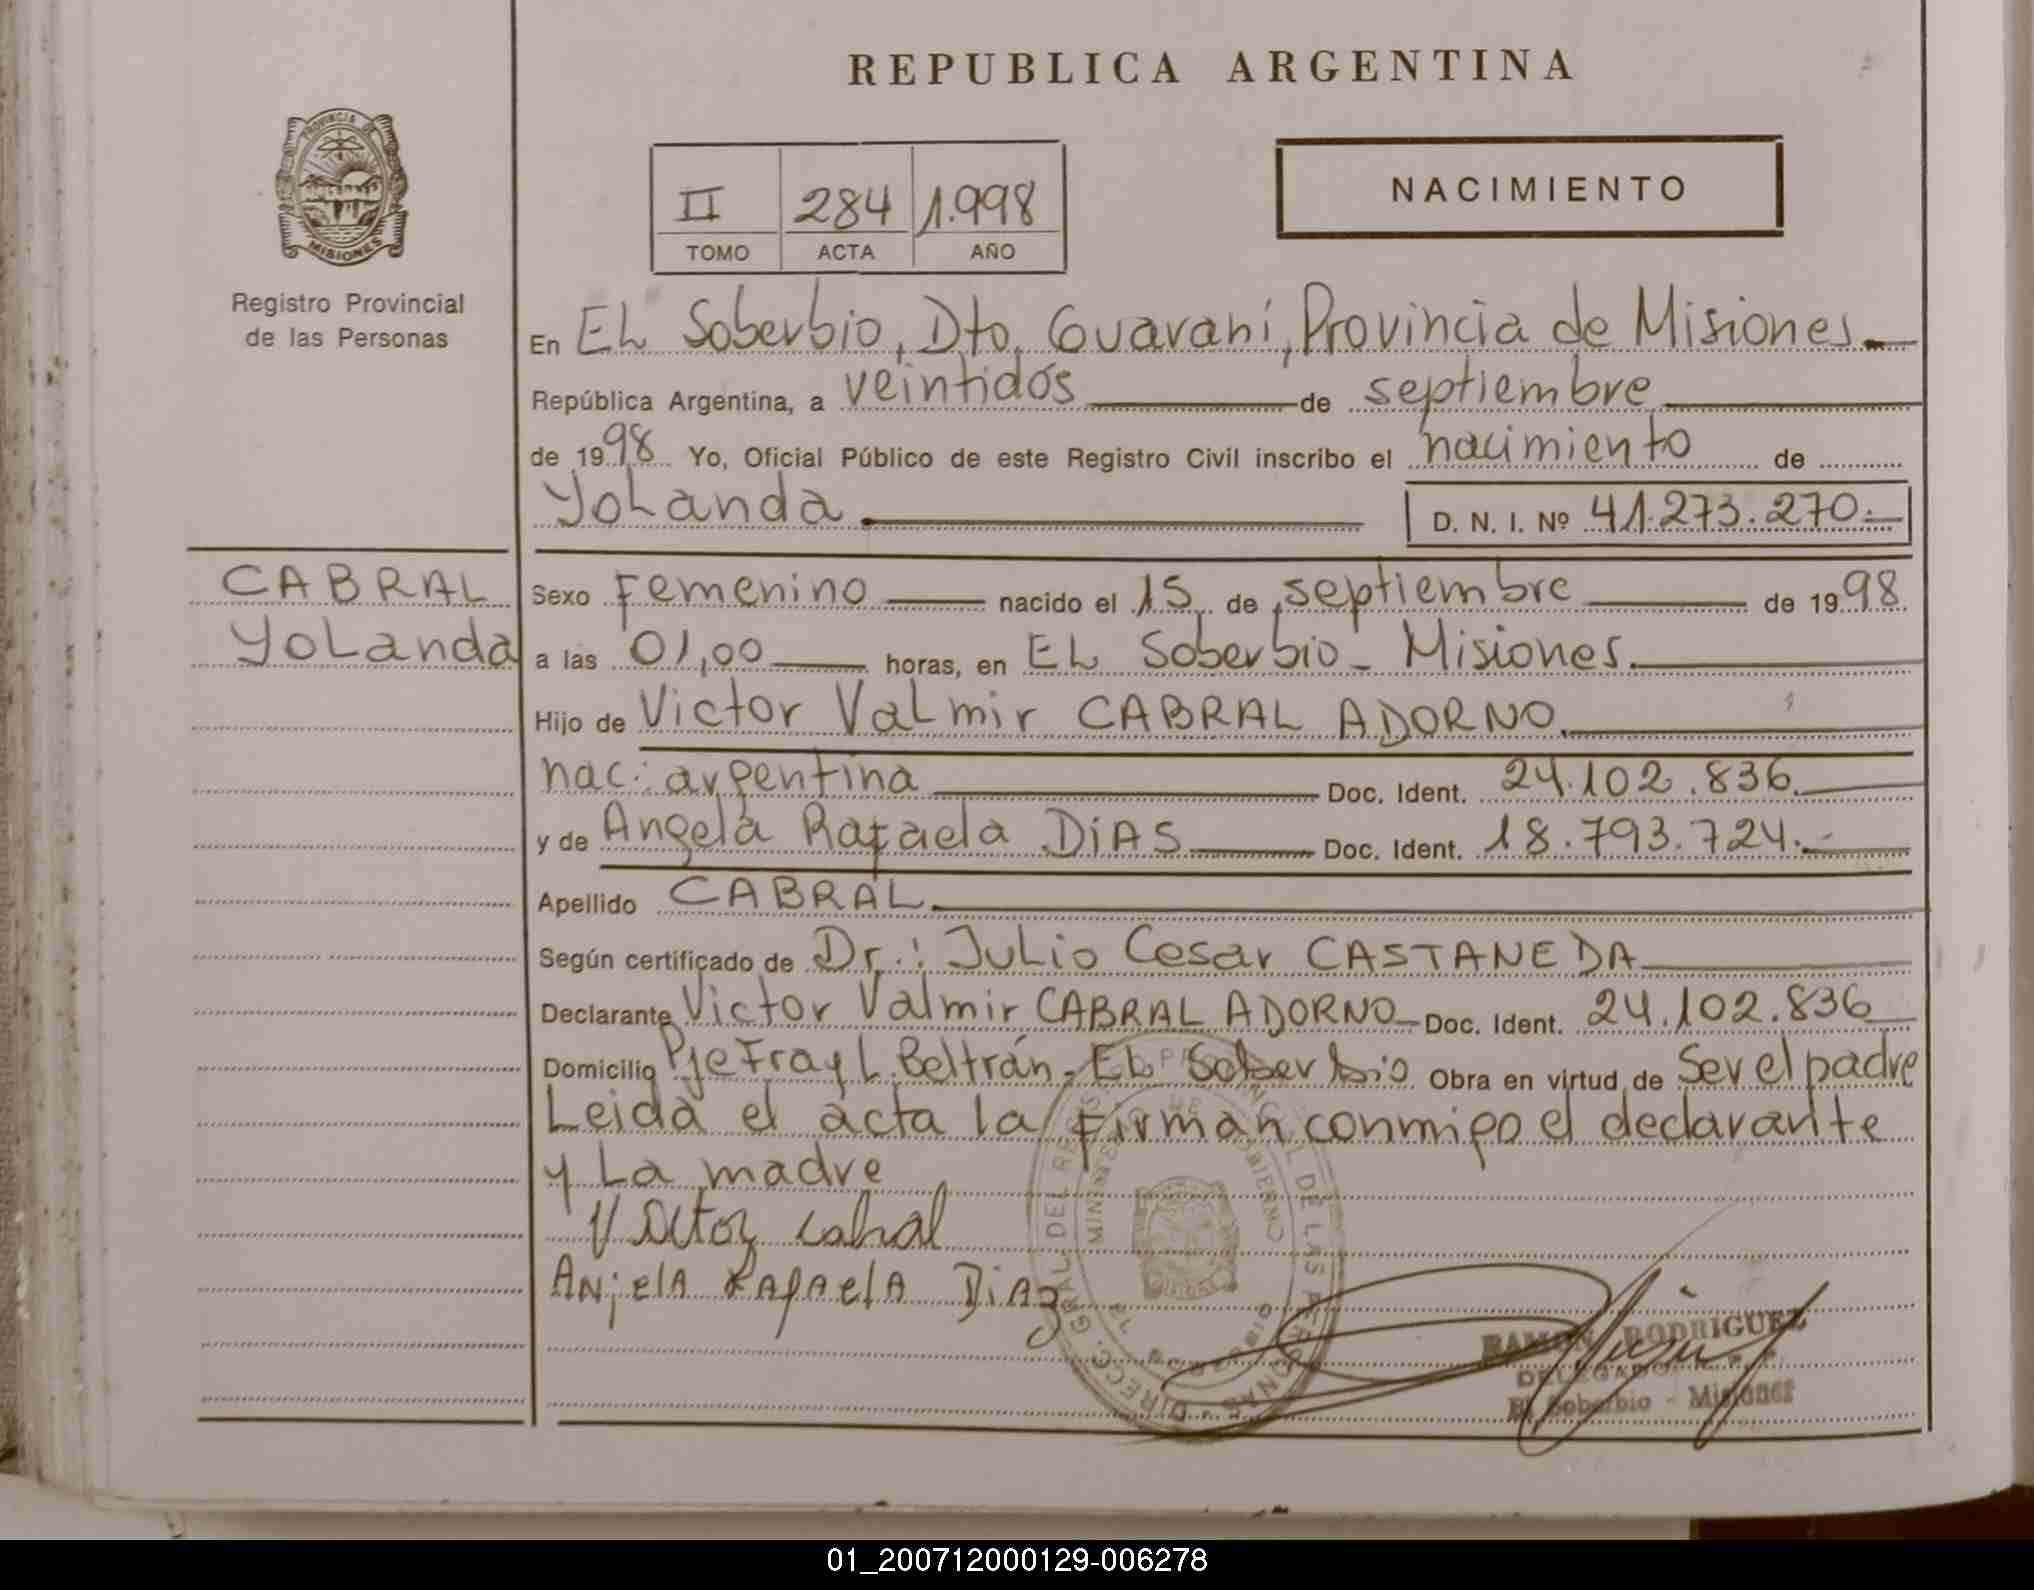 REPUBLICA ARGENTINA
PROVINCIA DE
MISIONES
Registro Provincial
de las Personas
II 284 1.998
TOMO ACTA AÑO
NACIMIENTO
En EL Soberbio, Dto. Guaraní, Provincia de Misiones
República Argentina, a veintidós de septiembre
de 1998 Yo, Oficial Público de este Registro Civil inscribo el nacimiento de
Yolanda D. N. I. Nº 41.273.270.
CABRAL
Yolanda
Sexo Femenino nacido el 15 de septiembre de 1998
a las 01,00 horas, en EL Soberbio - Misiones.
Hijo de Victor Valmir CABRAL ADORNO.
nac: argentina Doc. Ident. 24.102.836.
y de Angela Rafaela DIAS Doc. Ident. 18.793.724.
Apellido CABRAL.
Según certificado de Dr.: Julio Cesar CASTANEDA
Declarante Victor Valmir CABRAL ADORNO Doc. Ident. 24.102.836
Domicilio Pje Fray L. Beltrán - EL Soberbio Obra en virtud de Ser el padre
Leida el acta la firman conmigo el declarante
y La madre
Victor Cabral
Anjela Rafaela Diaz
DIRECC. GRAL. DEL REGIST. PROVINCIAL DE LAS PERSONAS
MINISTERIO DE GOBIERNO
RAMON RODRIGUEZ
El Soberbio - Misiones
01_200712000129-006278